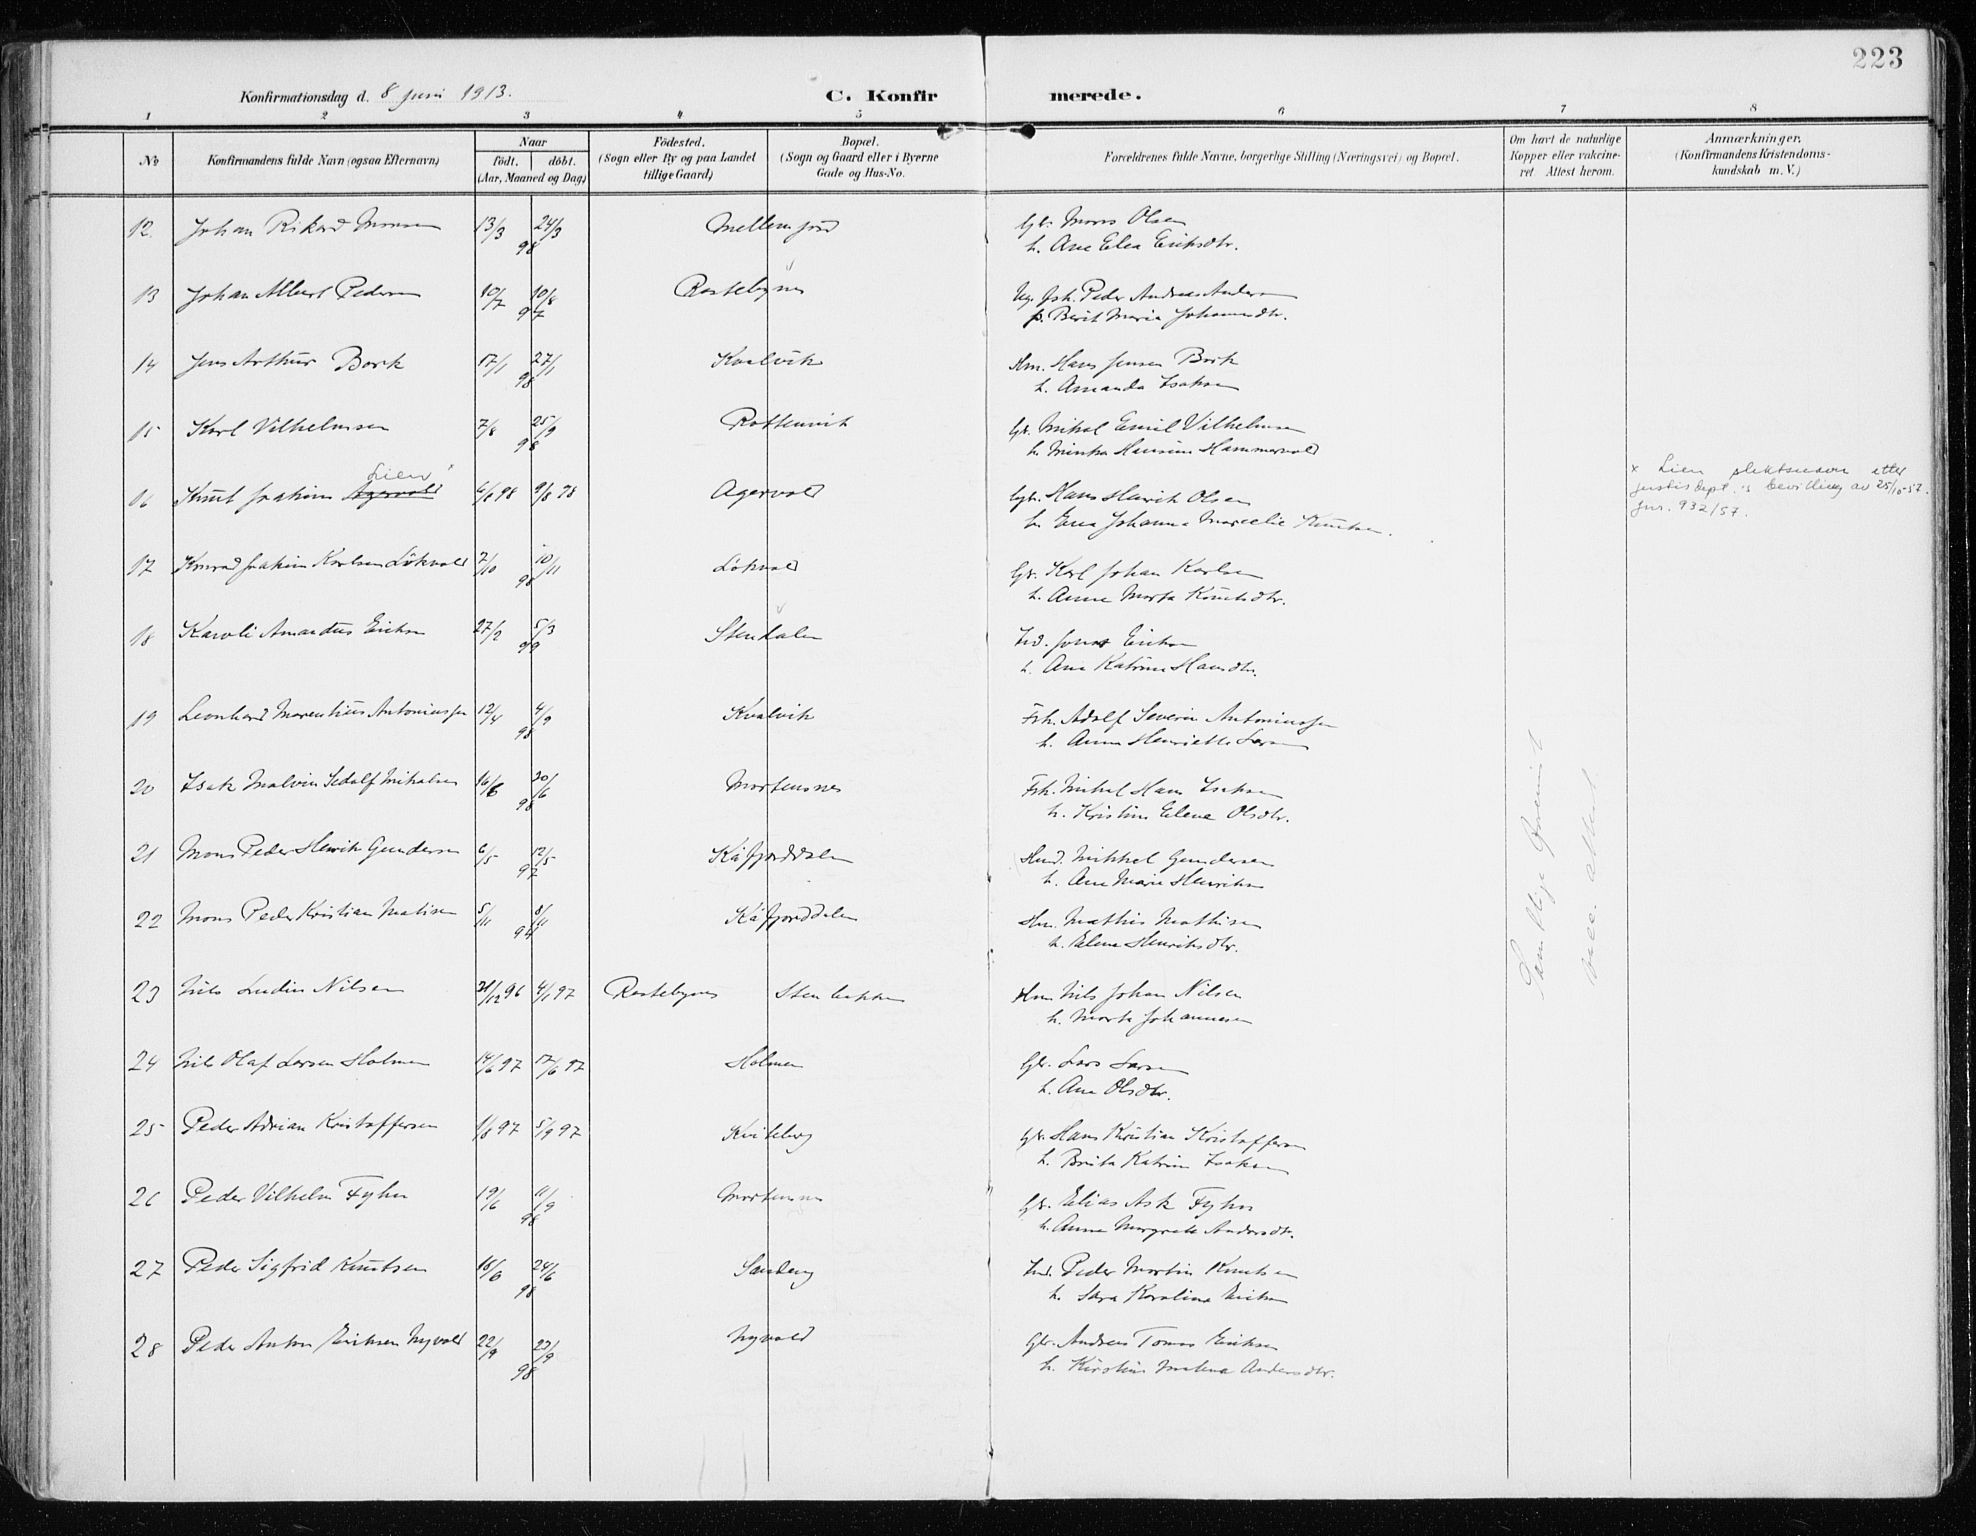 223
Konfirmationsdag d. 8 juni 1913.
C. Konfirmerede.
1 2 3 4 5 6 7 8
No
Konfirmandens fulde Navn (ogsaa Efternavn)
Naar
født. døbt.
(Aar, Maaned og Dag)
Fødested.
(Sogn eller By og paa Landet
tillige Gaard)
Bopæl.
(Sogn og Gaard eller i Byerne
Gade og Hus-No.
Forældrenes fulde Navne, borgerlige Stilling (Næringsvei) og Bopæl.
Om havt de naturlige
Kopper eller vakcine-
ret Attest herom.
Anmærkninger.
(Konfirmandens Kristendoms-
kundskab m. V.)
12. Johan Rikard Monsen 13/3 24/3 98 Mellemjord Gbr. Mons Olsen
h. Ane Elea Eriksdtr.
13 Johan Albert Pedersen 10/7 10/8 97 Rastebynes Ug. fsk. Peder Andreas Andersen
p. Berit Maria Johannesdtr.
14 Jens Arthur Bork 17/1 27/1 98 Kvalvik Hm. Hans Jensen Bork
h. Amanda Isaksen
15 Karl Vilhelmsen 7/8 25/9 98 Rottenvik Gbr. Mikal Emil Vilhelmsen
h. Minka Hansine Hammervold
Lien x
16 Knut Joakim Agervold 6/6 98 9/8 98 Agervold Gbr. Hans Henrik Olsen
h. Eva Johanna Marcelie Knutsen.
x Lien slektsnavn etter
justisdept.'s bevilling av 25/10-57.
Jnr. 932/57.
17 Konrad Joakim Karlsen Løkvold 7/10 10/11 98 Løkvold Gbr. Karl Johan Karlsen
h. Anne Marta Knutsdtr.
18 Karoli Amandus Eriksen 27/2 5/3 99 Stendalen Ind. Jonas Eriksen
h. Ane Katrine Hansdtr.
19 Leonhard Marentius Antoniussen 12/4 4/9 98 Kvalvik Fsk. Adolf Severin Antoniussen
h. Anna Henriette Larsen
20 Isak Malvin Sedolf Mikalsen 16/6 20/6 98 Mortensnes Fsk. Mikal Hans Isaksen
h. Kristine Elene Olsdtr.
21 Mons Peder Henrik Gundersen 6/5 12/5 97 Kåfjorddalen Hmd. Mikkel Gundersen
h. Ane Marie Henriksen
22 Mons Peder Kristian Matisen 5/11 8/11 94 Kåfjorddalen Hm. Mathis Mathisen
h. Elena Henriksdtr.
23 Nils Ludin Nilsen 31/12 96 4/1 97 Rastebynes Stenbakken Hm Nils Johan Nilsen
h. Marta Johannesen
24 Nils Olaf Larsen Holmen 14/6 97 17/6 97 Holmen Gbr. Lars Larsen
h. Ane Olsdtr.
25 Peder Adrian Kristoffersen 1/8 97 5/9 97 Kviteberg Gbr. Hans Kristian Kristoffersen
h. Brita Katrine Isaksen
26 Peder Vilhelm Fyhn 19/6 11/9 98 Mortensnes Gbr. Elias Ask Fyhn
h. Anne Margrete Andersdtr.
27 Peder Sigfrid Knutsen 16/6 24/6 98 Samueling Ind. Peder Martin Knutsen
h. Sara Karolina Eriksen
28 Peder Anton Eriksen Nyvold 22/9 23/9 98 Nyvold Gbr. Andreas Tomas Eriksen
h. Kirstine Malena Andersdtr.
Samtlige fremvist
vacc. attest